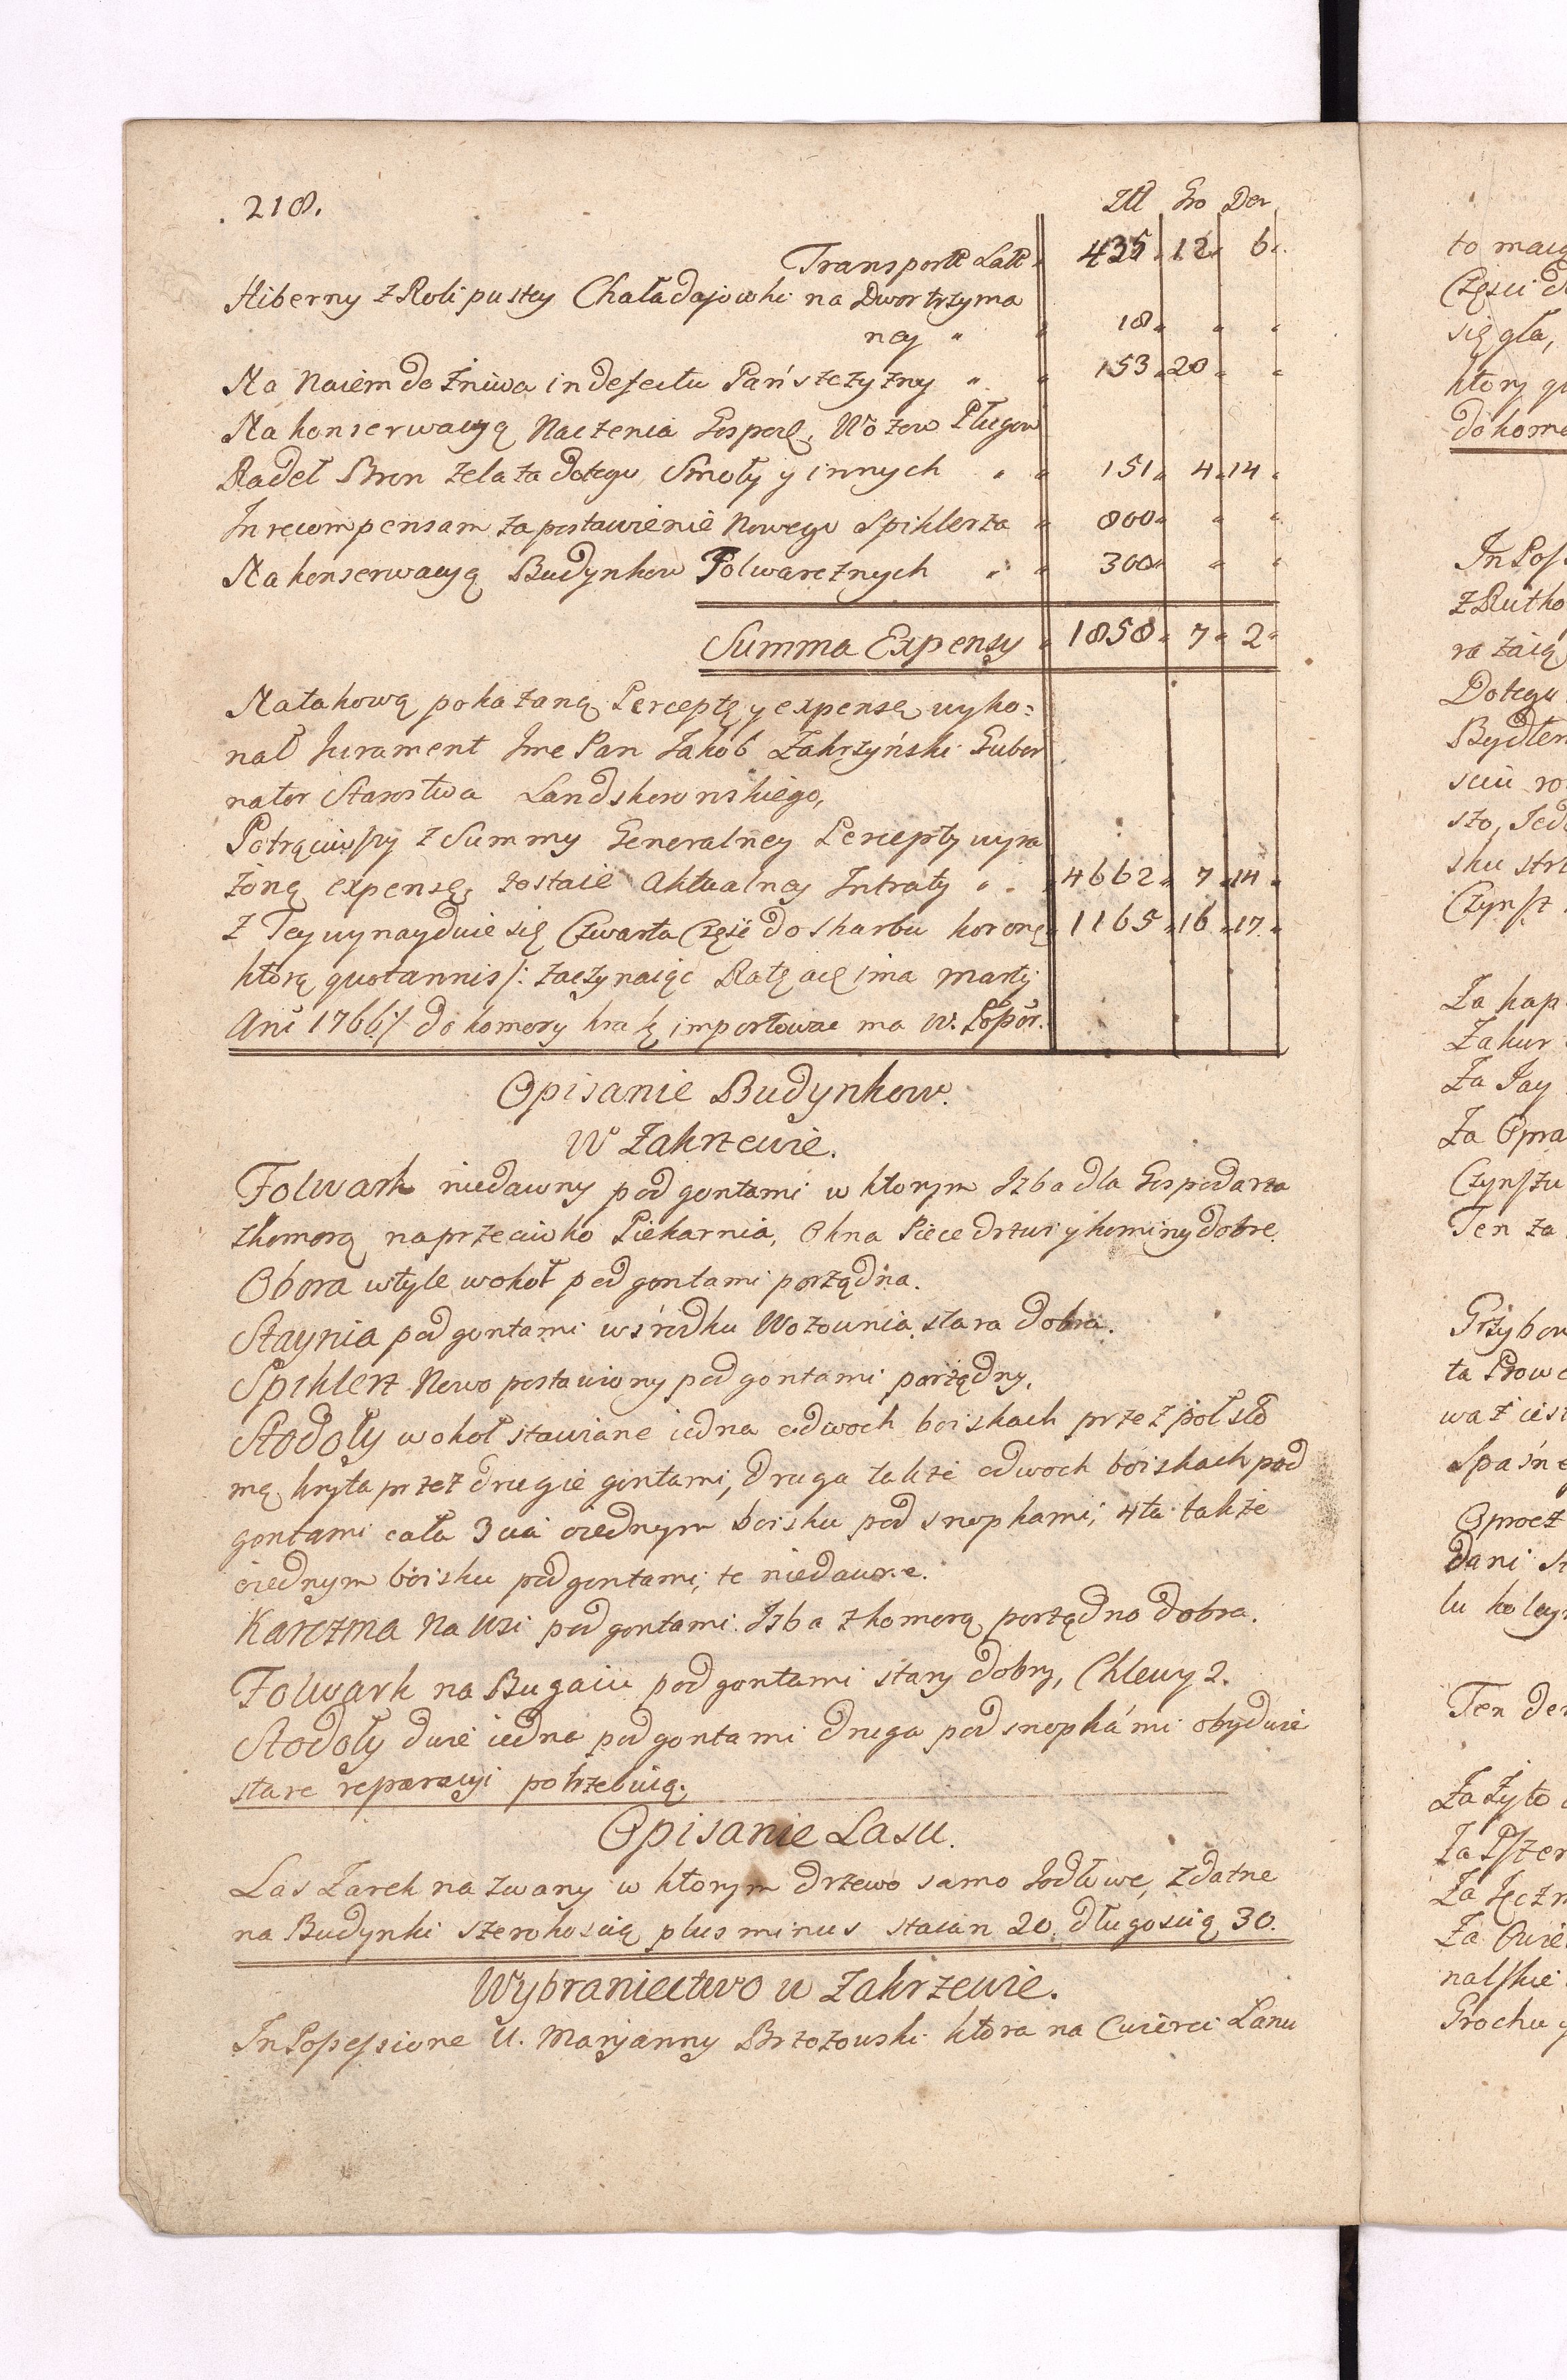 . 218.
Złł Gro Den
Transportt Latt 435 12 6
Hiberny z Roli pustey Chaładajowski na Dwor trzyma
ney " " 18 " "
Na Naiem do Zniwa in defectu Pańszczyzny " " 153 20 "
Na konserwacyą Naczenia Gospod. Wozow Pługow
Radeł Bron Zelaza dotego Smoły y innych " " 151 4 14
In recompensam za postawienie Nowego Spiklerza " 800 " "
Na konserwacyą Budynkow Folwarcznych " " 300 " "
Summa Expensy 1858 7 2
Na takową pokazaną Perceptę y expensę wyko=
nał Jurament Jme Pan Jakob Zakrzyński Guber
nator Starostwa Landskoronskiego,
Potrąciwszy z Summy Generalney Percepty wyra
żoną expensę, zostaie Aktualney Intraty " . 4662 7 14
Z Tey wynayduie się Czwarta Częśc do Skarbu koronę 1165 16 17
ktorą quotannis /: zaczynaiąc Ratę a 1ma Martij
Ani 1766 :/ do komory kra k importować ma W. Possor.
Opisanie Budynkow.
W Zakrzewie.
Folwark niedawny pod gontami w ktorym Izba dla Gospodarza
zkomorą naprzeciwko Piekarnia, Okna Piece drzwi y kominy dobre.
Obora wtyle wokoł pod gontami porządna.
Staynia pod gontami wśrodku Wozownia stara dobra.
Spiklerz Nowo postawiony pod gontami porządny.
Stodoły wokoł stawiane iedna odwoch boiskach przez poł sło
mą kryta przez drugie gontami, druga takze odwoch boiskach pod
gontami cała 3cia oiednym boisku pod snopkami; 4ta takze
oiednym boisku pod gontami, te niedawne.
Karczma Na Wsi pod gontami Izba zkomorą porządno dobra.
Folwark na Bugaiu pod gontami stary dobry, Chlewy 2.
Stodoły dwie iedna pod gontami druga pod snopkámi obydwie
stare reparacyi potrzebuią.
Opisanie Lasu.
Las Zarek nazwany w ktorym drzewo samo Jodłowe, zdatne
na Budynki szerokoscią plus minus staian 20. długoscią 30.
Wybraniectwo w Zakrzewie.
In Possessione U. Maryanny Brzozowski ktora na Cwierci Lanu
to maią
Częsci
się gła,
ktory
do komo
In Poss
z Rutko
ra zaią
Dotego
Bydłem
sciu ro
sto, Jed
sku
Czynsz
Za kap
Za kur
Za Jay
Za Opra
Czynszu
Ten za
Grzybow
ta Prowe
waz iest
Spaśne
Oprocz
dani
lu
Ten
Za Żyto
Za Pszen
Za Jęczm
Za Owie
nalskie
Grochu y